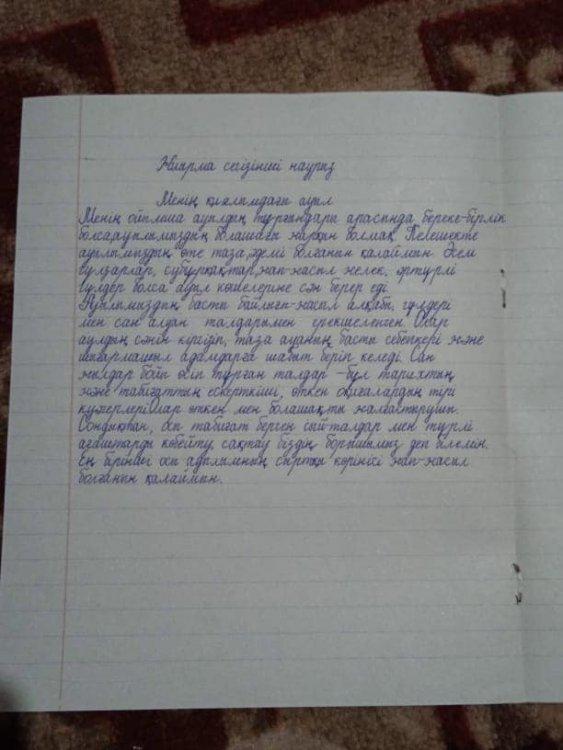 Жиырма сегізінші наурыз
Менің қиялымдағы ауыл
Менің ойымша ауылдың тұрғындары арасында береке-бірлік
болса,ауылымыздың болашағы жарқын болмақ. Келешекте
ауылымыздың өте таза,әдемі болғанын қалаймын. Әсем
гүлзарлар, субұрқақтар,жап-жасыл желек, әртүрлі
гүлдер болса ауыл көшелеріне сән берер еді.
Ауылымыздың басты байлығы-жасыл алқабы, гүлдері
мен сан алуан талдарымен ерекшеленген. Олар
аулдың сәнін кіргізіп, таза ауаның басты себепкері және
шығармашыл адамдарға шабыт беріп келеді. Сан
жылдар бойы өсіп тұрған талдар -бұл тарихтың
және табиғаттың ескерткіші, өткен оқиғалардың тірі
куәгерлері.Олар өткен мен болашақты жалғастырушы.
Сондықтан, осы табиғат берген сый-талдар мен түрлі
ағаштарды көбейту, сақтау біздің борышымыз деп білемін.
Ең бірінші осы ауылымның сыртқы көрінісі жап-жасыл
болғанын қалаймын.